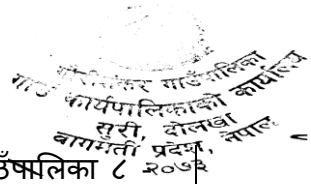 गौरीशंकर गाउँपालिका
गाउँ कार्यपालिकाको कार्यालय
सुरी, दोलखा
बागमती प्रदेश, नेपाल
उँपालिका ८ २०७३